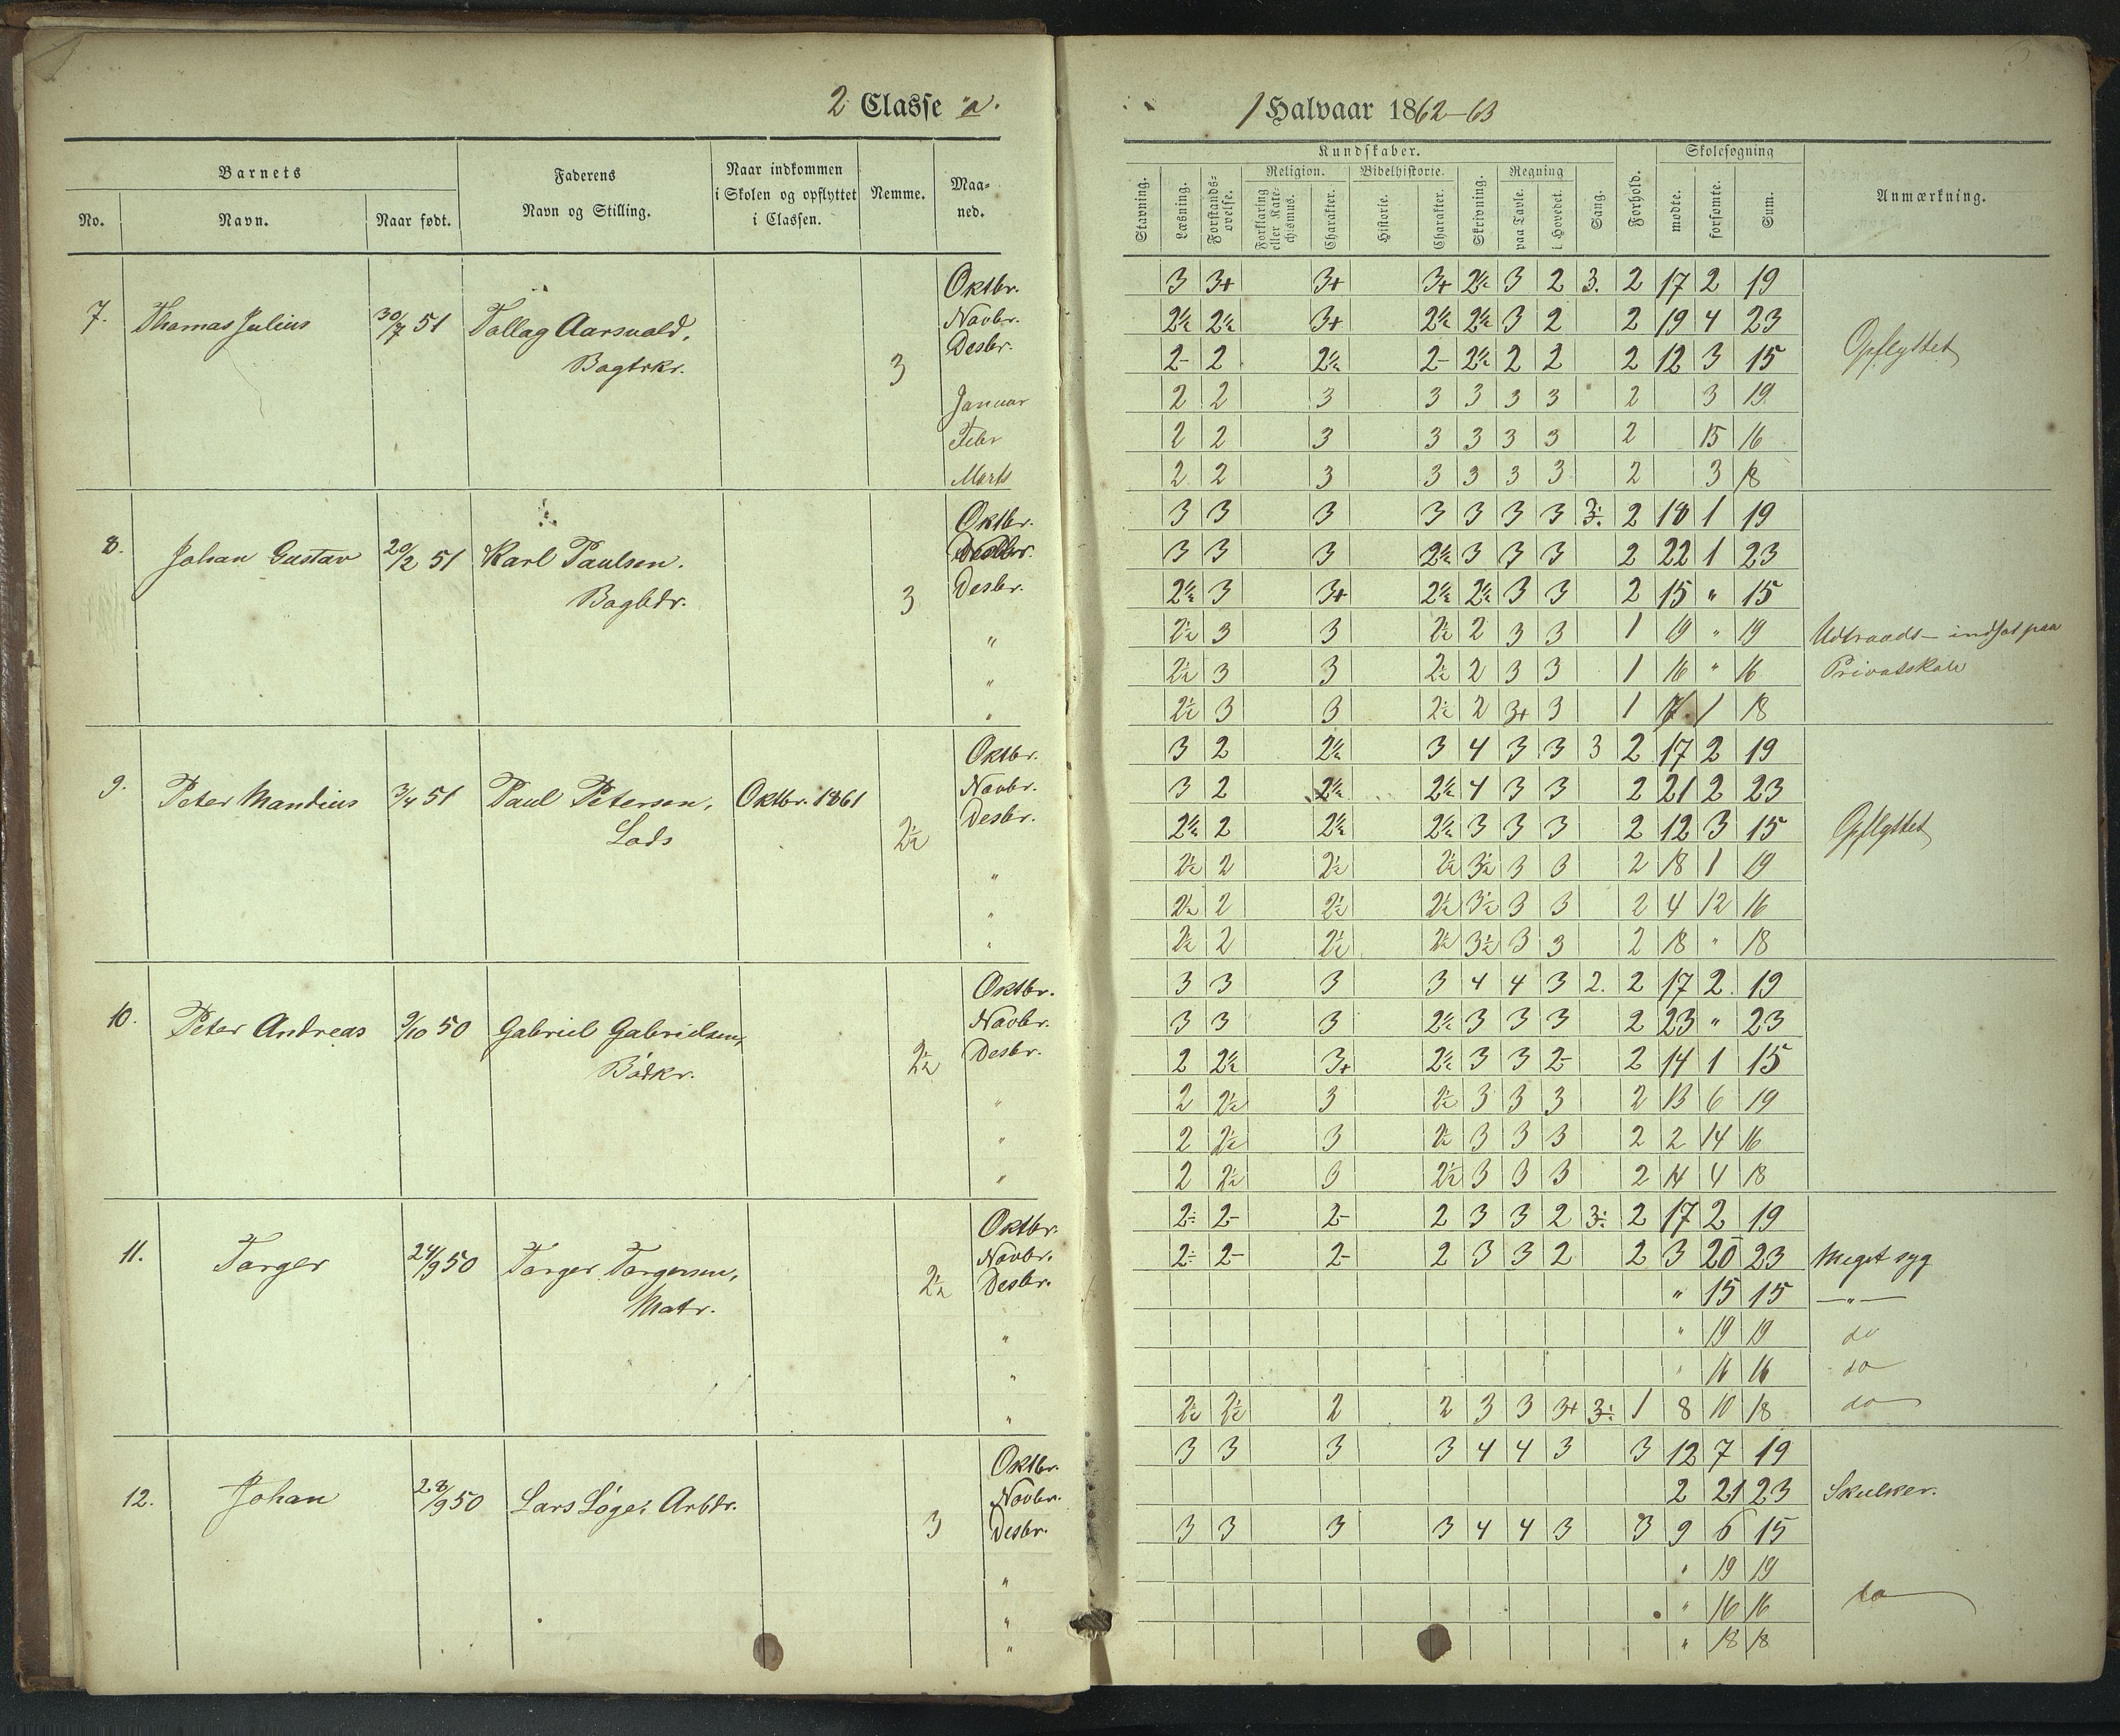 2 Classe a.
1 Halvaar 1862-63
Barnets
Faderens
Navn og Stilling.
Naar indkommen
i Skolen og opflyttet
i Classen.
Nemme.
Maa-
ned.
No.
Navn.
Naar født.
Kundskaber.
Religion.
Bibelhistorie.
Regning
Skolesøgning
Stavning.
Læsning.
Forstands-
øvelse.
Forklaring
eller Kate-
chismus.
Charakter.
Historie.
Charakter.
Skrivning.
paa Tavle.
i Hovedet.
Sang.
Forhold.
mødte.
forsømte.
Sum.
Anmærkning.
7. Thomas Julius 30/7 51 Tallag Aarsvald,
Bagtrkr.
3
Oktbr. 3 3+ 3+ 3+ 2½ 3 2 3. 2 17 2 19
Novbr. 2½ 2½ 3+ 2½ 2½ 3 2 2 19 4 23
Desbr. 2- 2 2½ 2- 2½ 2 2 2 12 3 15
Januar 2 2 3 3 3 3 3 2 3 19
Febr 2 2 3 3 3 3 3 2 15 16
Marts 2 2 3 3 3 3 3 2 3 18
Opflyttet
8. Johan Gustav 20/2 51 Karl Paulsen.
Bagbdr.
3
Oktbr. 3 3 3 3 3 3 3 3÷ 2 18 1 19
3 3 3 2½ 3 3 3 2 22 1 23
Desbr. 2½ 3 3+ 2½ 2½ 3 3 2 15 " 15
" 2½ 3 3 2½ 2 3 3 1 19 " 19
" 2½ 3 3 2½ 2 3 3 1 16 " 16
" 2½ 3 3 2½ 2 3+ 3 1 7 1 18
Udtraadt - indsat paa
Privatskole
9. Peter Mandius 3/4 51 Paul Petersen, Oktbr. 1861
Lods
2½
Oktbr. 3 2 2½ 3 4 3 3 3 2 17 2 19
Novbr. 3 2 2½ 2½ 4 3 3 2 21 2 23
Desbr. 2½ 2 2½ 2½ 3 3 3 2 12 3 15
" 2½ 2 2½ 2½ 3½ 3 3 2 18 1 19
" 2½ 2 2½ 2½ 3½ 3 3 2 4 12 16
" 2½ 2 2½ 2½ 3½ 3 3 2 18 " 18
Opflyttet
10. Peter Andreas 9/10 50 Gabriel Gabrielsen,
Bødkr.
2½
Oktbr. 3 3 3 3 4 4 3 2. 2 17 2 19
Novbr. 3 3 3 2½ 3 3 3 2 23 " 23
Desbr. 2 2½ 3+ 2½ 3 3 2- 2 14 1 15
" 2 2½ 3 2½ 3 3 3 2 13 6 19
" 2 2½ 3 2½ 3 3 3 2 2 14 16
" 2 2½ 3 2½ 3 3 3 2 14 4 18
11. Torger 24/9 50 Torger Torgersen,
Matr.
2½
Oktbr. 2÷ 2- 2- 2 3 3 2 3÷ 2 17 2 19
Novbr. 2÷ 2- 2- 2 3 3 2 2 3 20 23 Meget syg
Desbr. " 15 15 —"—
" " 19 19 do
" " 16 16 do
" 2½ 2½ 2 2 3 3 3+ 3÷ 1 8 10 18 do
12. Johan 28/9 50 Lars Løge, Arbdr.
3
Oktbr. 3 3 3 3 4 4 3 3 12 7 19
Novbr. 2 21 23 Skulker.
Desbr. 3 3 3 3 4 4 3 3 9 6 15
" " 19 19
" " 16 16 do
" " 18 18